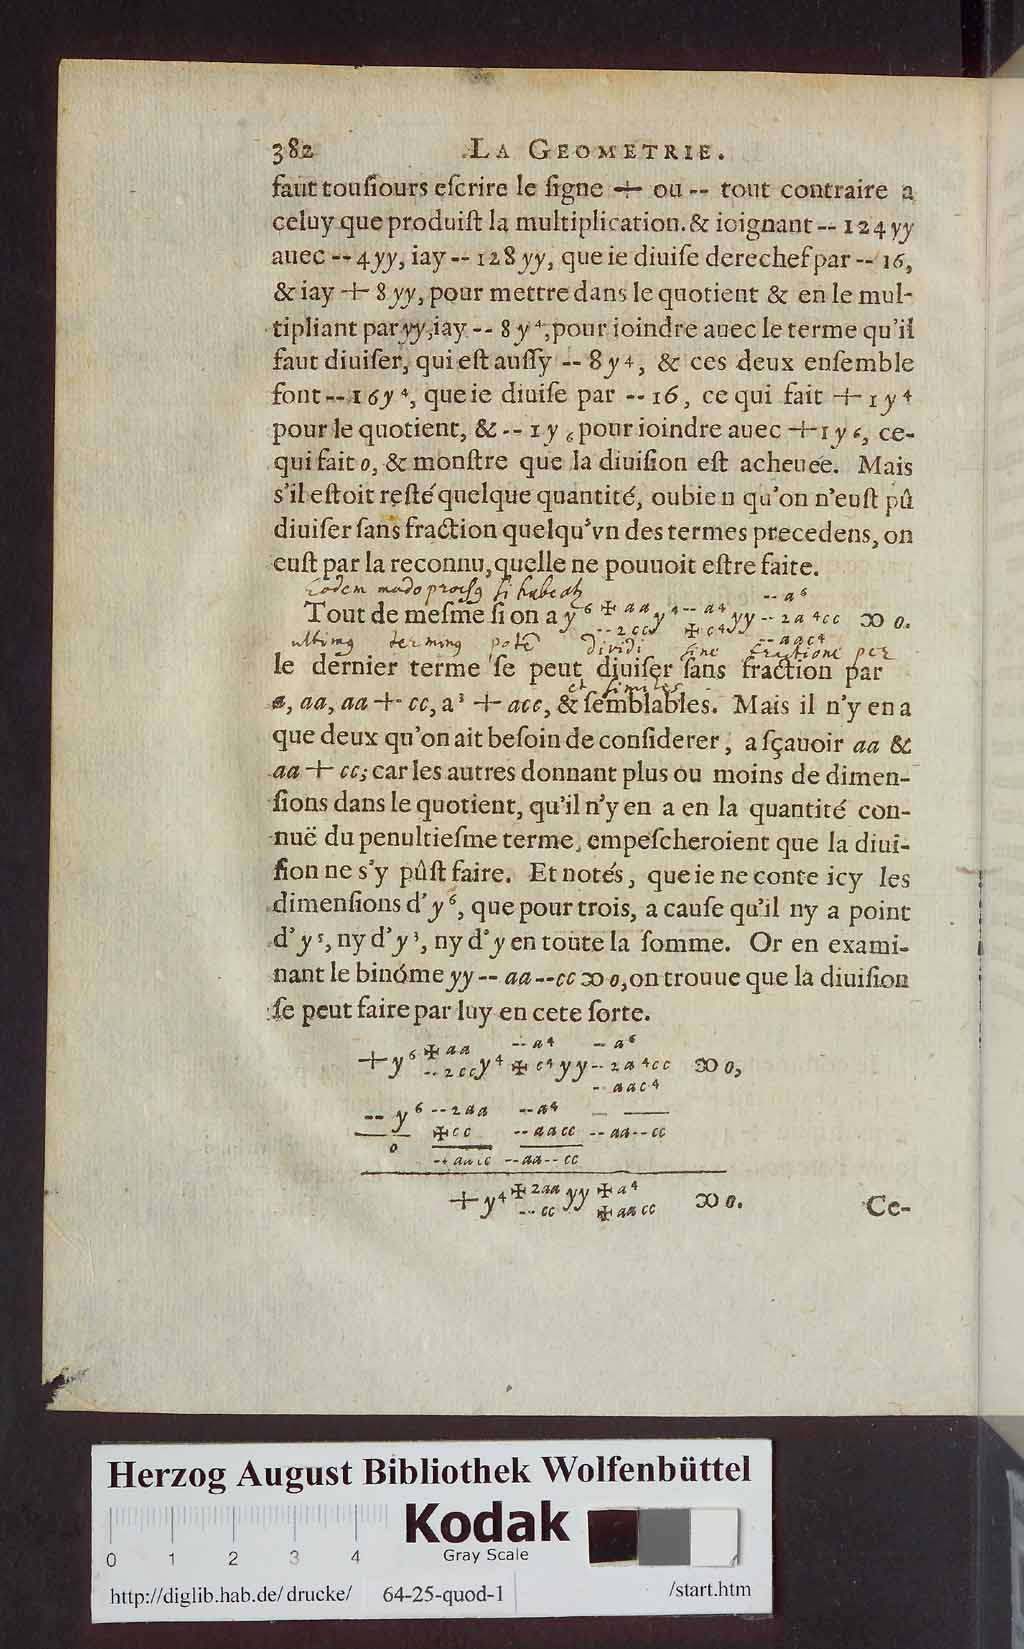 382 LA GEOMETRIE.
faut touſiours eſcrire le ſigne + ou -- tout contraire a
celuy que produiſt la multiplication. & ioignant -- 124 yy
auec -- 4 yy, iay -- 128 yy, que ie diuiſe derechef par -- 16,
& iay + 8 yy, pour mettre dans le quotient & en le mul-
tipliant par yy, iay -- 8 y⁴, pour ioindre auec le terme qu'il
faut diuiſer, qui eſt auſſy -- 8 y 4, & ces deux enſemble
font -- 16 y ⁴, que ie diuiſe par -- 16, ce qui fait + 1 y ⁴
pour le quotient, & -- 1 y 6 pour ioindre auec + 1 y 6, ce-
qui fait 0, & monſtre que la diuiſion eſt acheueé. Mais
s'il eſtoit reſté quelque quantité, oubien qu'on n'euſt pû
diuiſer ſans fraction quelqu'vn des termes precedens, on
euſt par la reconnu, quelle ne pouuoit eſtre faite.
Eodem modo ſi
-- a⁶
Tout de meſme ſi on a y⁶ ✠ aa y⁴ -- a⁴ yy -- 2 a ⁴cc ꝏ 0.
-- 2 cc ✠ c⁴ -- aac⁴
ultimus terminus dividi ſine fractione per
le dernier terme ſe peut diuiſer ſans fraction par
et ſimiles
a, aa, aa + cc, a³ + acc, & ſemblables. Mais il n'y en a
que deux qu'on ait beſoin de conſiderer, a ſçauoir aa &
aa + cc; car les autres donnant plus ou moins de dimen-
ſions dans le quotient, qu'il n'y en a en la quantité con-
nuë du penultieſme terme, empeſcheroient que la diui-
ſion ne s'y pûſt faire. Et notés, que ie ne conte icy les
dimenſions d'y⁶, que pour trois, a cauſe qu'il ny a point
d'y⁵, ny d'y³, ny d'y en toute la ſomme. Or en exami-
nant le binóme yy -- aa -- cc ꝏ 0, on trouue que la diuiſion
ſe peut faire par luy en cete ſorte.
✠ aa -- a⁴ -- a⁶
+ y⁶ -- 2 cc y⁴ ✠ c⁴ yy -- 2 a ⁴cc ꝏ 0,
-- aac⁴
-- y⁶ -- 2 aa -- a⁴
✠ cc -- aacc -- aa -- cc
0
-- aa -- cc -- aa -- cc
+ y⁴ ✠ 2aa yy ✠ a⁴ ꝏ 0.
-- cc ✠ aacc
Ce-
Herzog August Bibliothek Wolfenbüttel
Kodak
Gray Scale
0 1 2 3 4
http://diglib.hab.de/drucke/ 64-25-quod-1 /start.htm